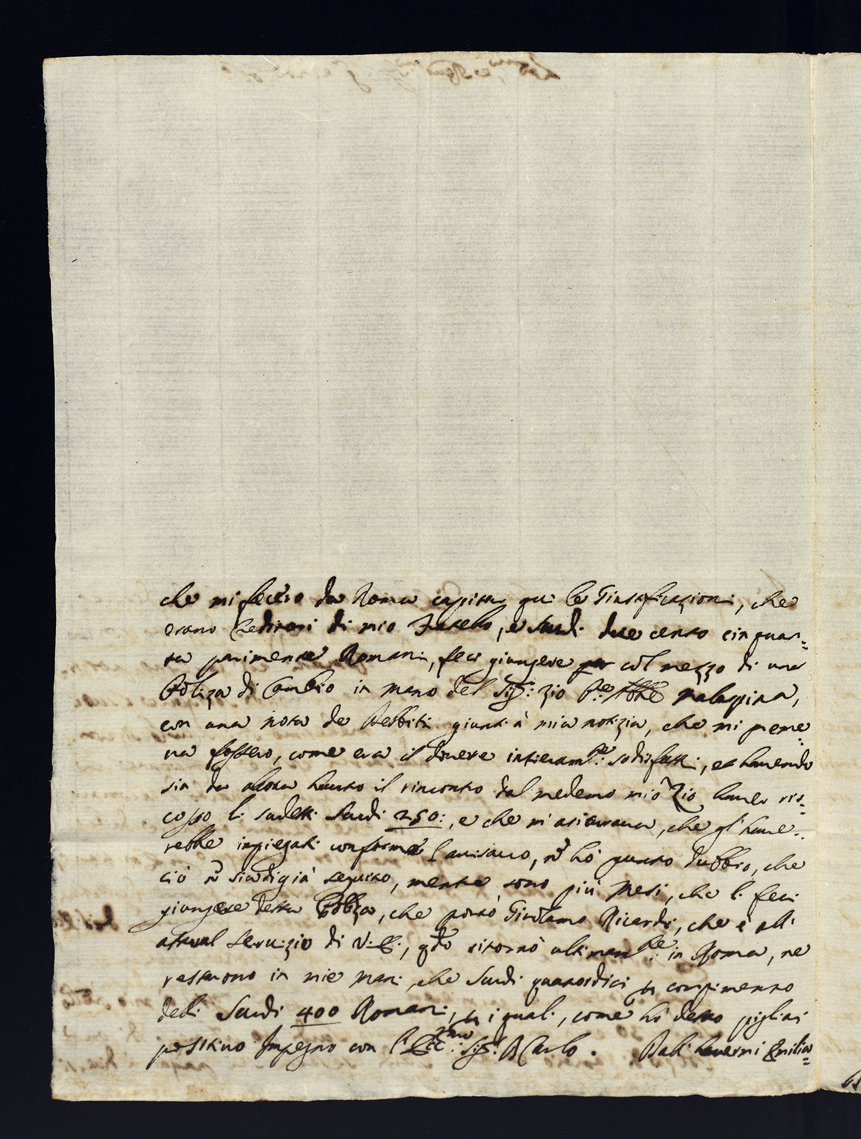 che mi fecero da Roma capitar qui le Giustificazioni, che
erano Creditori di mio Fratello, e Scudi due cento cinquan=
ta parimente Romani, feci giungere col mezzo di una
Poliza di Cambio in mano del Sig.r Zio Malaspina,
con una nota de Debbiti giunti à mia notizia, che mi preme=
va fossero, come era il dovere intieram.te sodisfatti, et havendo
sin da allora havuto il rincontro dal medemo mio Zio haver ris=
cosso li sudetti Scudi 250:, e che m'asicurava, che gl'have=
rebbe impiegati conforme l'avisavo, nō hò punto dubbio, che
ciò nō sia di già seguito, mentre sono più Mesi, che li feci
giungere detta Polliza, che portò Girolamo Ricardi, che è all'
attual servizio di V.E., q.do ritornò ultimam.te in Roma, ne
restarono in mie mani che Scudi quattordici p compimento
delli Scudi 400 Romani, p i quali, come hò detto pigliai
positivo Impegno con l'Ecc.mo Sig.r D Carlo. Dalli havermi Emilio=